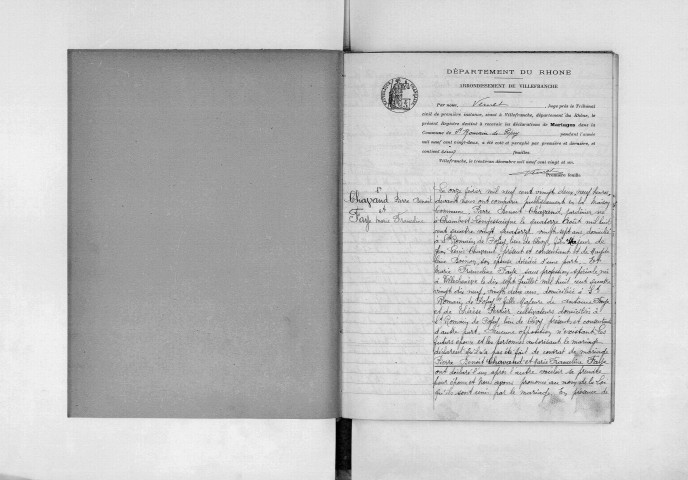 DÉPARTEMENT DU RHONE
ARRONDISSEMENT DE VILLEFRANCHE
Par nous, Juge près le Tribunal
civil de première instance, séant à Villefranche, département du Rhône, le
présent Registre destiné à recevoir les déclarations de Mariages dans la
Commune de St Romain de Popey pendant l'année
mil neuf cent vingt-deux, a été coté et paraphé par première et dernière, et
contient feuilles.
Villefranche, le trente-un décembre mil neuf cent vingt et un.
Première feuille.
Chavand Pierre Benoit
et
Faye Marie Francine
Le onze février mil neuf cent vingt deux, neuf heures,
devant nous ont comparu publiquement en la maison
commune Pierre Benoit Chavand, jardinier né
à Chambost-Longessaigne le quatorze Août mil huit
cent quatre vingt quatorze vingt sept ans domicilié
à St Romain de Popey, fils majeur de
Chavand présent et consentant et de
son épouse décédée d'une part. Et
Marie Francine Faye sans profession spéciale, née
à le dix sept juillet mil huit cent quatre
vingt dix neuf, vingt deux ans, domiciliée à St
Romain de Popey fille majeure de Antoine Faye
et de cultivateurs domiciliés à
St Romain de Popey présents et consentants
d'autre part. Aucune opposition n'existant, les
futurs époux et les personnes autorisant le mariage
déclarent qu'il n'a pas été fait de contrat de mariage
Pierre Benoit Chavand et Marie Francine Faye
ont déclaré l'un après l'autre vouloir se prendre
pour époux et nous avons prononcé au nom de la Loi
qu'ils sont unis par le mariage. En présence de